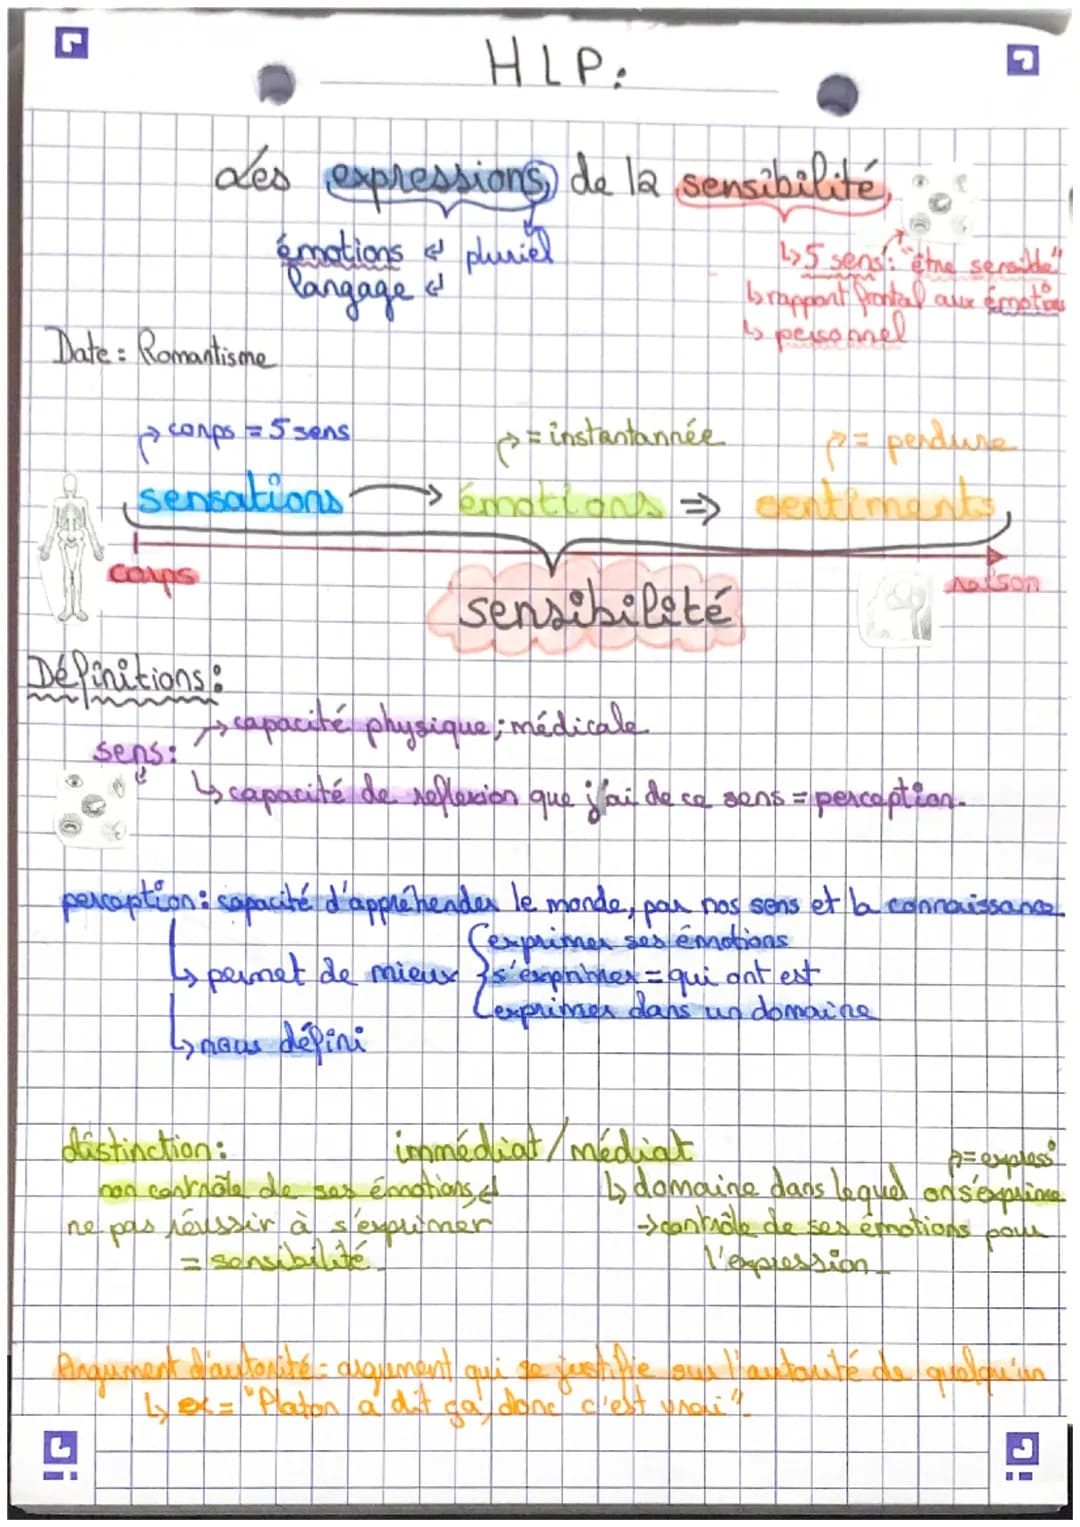 HLP:
Les expressions de la sensibilité
émotions ↲ pluriel
langage ↲
↳ 5 sens: "être sensible"
↳ rapport frontal aux émotions
↳ personnel
Date: Romantisme
corps = 5 sens
= instantannée
= perdure
sensations → émotions ⇒ sentiments
corps
raison
sensibilité
Définitions:
sens:
→ capacité physique; médicale
↳ capacité de reflexion que j'ai de ce sens = perception.
perception: capacité d'appréhender le monde, par nos sens et la connaissance
↳ permet de mieux
exprimer ses émotions
s'exprimer = qui ont est
exprimer dans un domaine
↳ nous défini
distinction: immédiat / médiat
non contrôle de ses émotions ↲
ne pas réussir à s'exprimer
= sensibilité
= express°
↳ domaine dans lequel on s'exprime
→ contrôle de ses émotions pour
l'expression
Argument d'autorité: argument qui se justifie sur l'autorité de quelqu'un
↳ ex = "Platon a dit ça, donc c'est vrai".